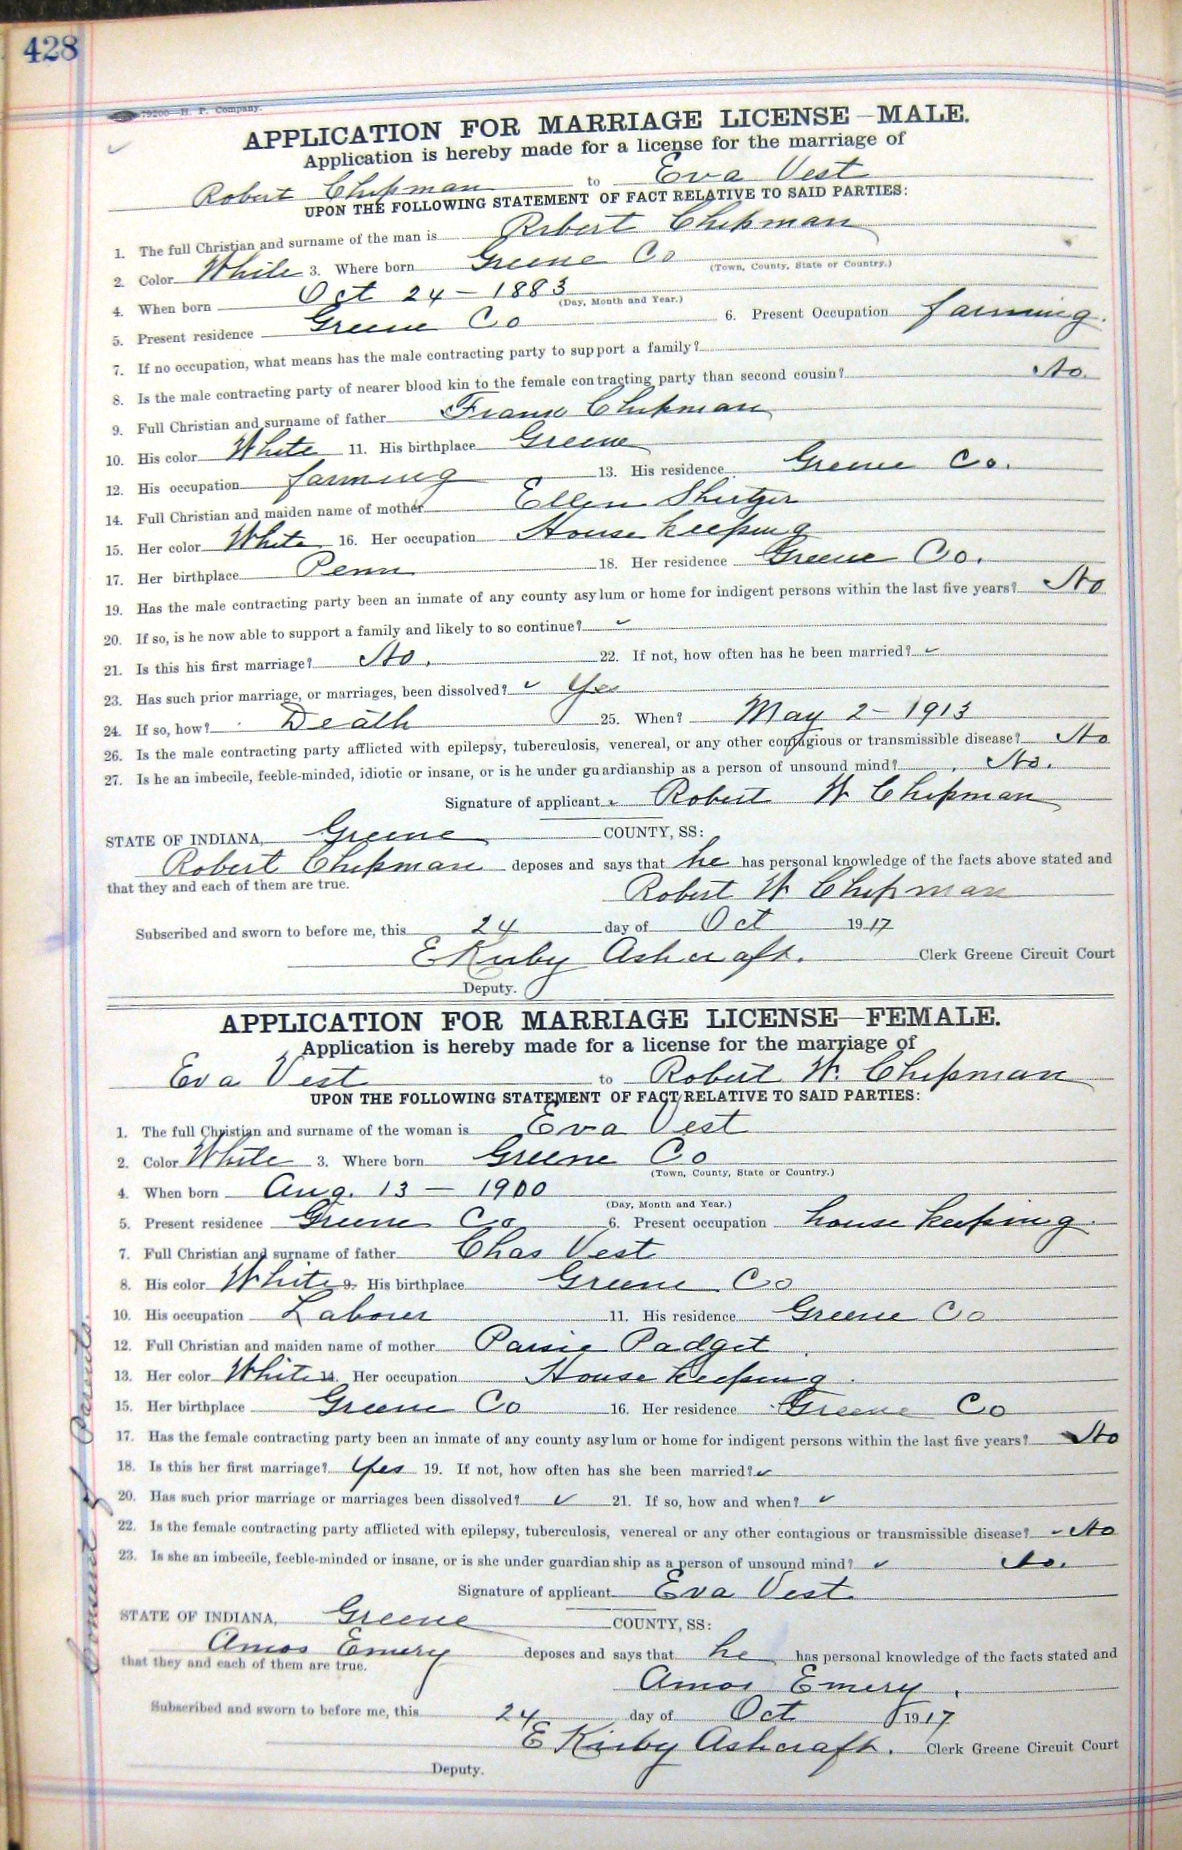 428
79200—H. P. Company.
APPLICATION FOR MARRIAGE LICENSE—MALE.
Application is hereby made for a license for the marriage of
Robert Chipman to Eva Vest
UPON THE FOLLOWING STATEMENT OF FACT RELATIVE TO SAID PARTIES:
1. The full Christian and surname of the man is Robert Chipman
2. Color White 3. Where born Greene Co
(Town, County, State or Country.)
4. When born Oct 24 - 1883
(Day, Month and Year.)
5. Present residence Greene Co 6. Present Occupation farming.
7. If no occupation, what means has the male contracting party to support a family?
8. Is the male contracting party of nearer blood kin to the female contracting party than second cousin? No.
9. Full Christian and surname of father Chipman
10. His color White 11. His birthplace Greene
12. His occupation farming 13. His residence Greene Co.
14. Full Christian and maiden name of mother Ellen
15. Her color White 16. Her occupation House keeping
17. Her birthplace Penn 18. Her residence Greene Co.
19. Has the male contracting party been an inmate of any county asylum or home for indigent persons within the last five years? No
20. If so, is he now able to support a family and likely to so continue? ✓
21. Is this his first marriage? No. 22. If not, how often has he been married? ✓
23. Has such prior marriage, or marriages, been dissolved? ✓ Yes
24. If so, how? Death 25. When? May 2 - 1913
26. Is the male contracting party afflicted with epilepsy, tuberculosis, venereal, or any other contagious or transmissible disease? No
27. Is he an imbecile, feeble-minded, idiotic or insane, or is he under guardianship as a person of unsound mind? No.
Signature of applicant Robert W Chipman
STATE OF INDIANA, Greene COUNTY, SS:
Robert Chipman deposes and says that he has personal knowledge of the facts above stated and
that they and each of them are true.
Robert W Chipman
Subscribed and sworn to before me, this 24 day of Oct 1917
E Kirby Ashcraft. Clerk Greene Circuit Court
Deputy.
APPLICATION FOR MARRIAGE LICENSE—FEMALE.
Application is hereby made for a license for the marriage of
Eva Vest to Robert W. Chipman
UPON THE FOLLOWING STATEMENT OF FACT RELATIVE TO SAID PARTIES:
1. The full Christian and surname of the woman is Eva Vest
2. Color White 3. Where born Greene Co
(Town, County, State or Country.)
4. When born Aug. 13 — 1900
(Day, Month and Year.)
5. Present residence Greene Co 6. Present occupation house keeping.
7. Full Christian and surname of father Chas Vest
8. His color White 9. His birthplace Greene Co
10. His occupation Laborer 11. His residence Greene Co
12. Full Christian and maiden name of mother Padget
13. Her color White 14. Her occupation House keeping.
15. Her birthplace Greene Co 16. Her residence Greene Co
17. Has the female contracting party been an inmate of any county asylum or home for indigent persons within the last five years? No
18. Is this her first marriage? Yes 19. If not, how often has she been married? ✓
20. Has such prior marriage or marriages been dissolved? ✓ 21. If so, how and when? ✓
22. Is the female contracting party afflicted with epilepsy, tuberculosis, venereal or any other contagious or transmissible disease? - No
23. Is she an imbecile, feeble-minded or insane, or is she under guardianship as a person of unsound mind? ✓ No.
Signature of applicant Eva Vest
STATE OF INDIANA, Greene COUNTY, SS:
Amos Emery deposes and says that he has personal knowledge of the facts stated and
that they and each of them are true.
Amos Emery.
Subscribed and sworn to before me, this 24 day of Oct 1917
E Kirby Ashcraft. Clerk Greene Circuit Court
Deputy.
Consent of Parents.